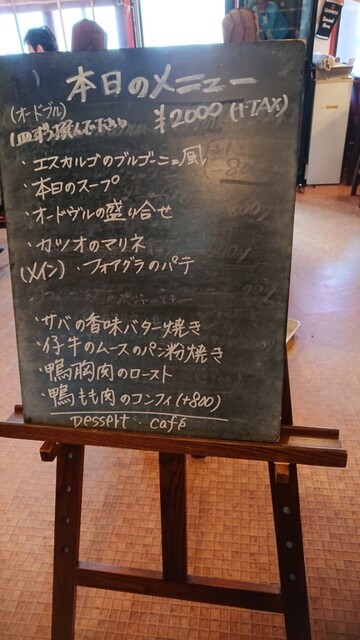 本日のメニュー
(オードブル) ¥2000 (+TAX)
1皿ずつ選んで下さい
・エスカルゴのブルゴーニュ風
・本日のスープ
・オードヴルの盛り合せ
・カツオのマリネ
・フォアグラのパテ
(メイン)
・サバの香味バター焼き
・仔牛のムースのパン粉焼き
・鴨胸肉のロースト
・鴨もも肉のコンフィ(+800)
Dessert・café